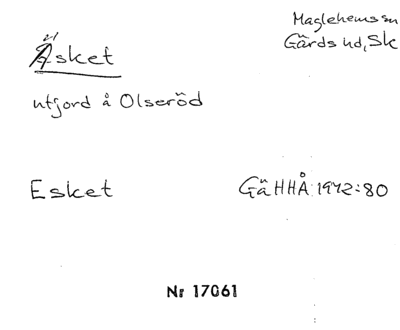 Maglehems sn
Äsket
Gärds hd, Sk
utjord å Olseröd
Esket
GäHHÅ 1942:80
Nr 17061